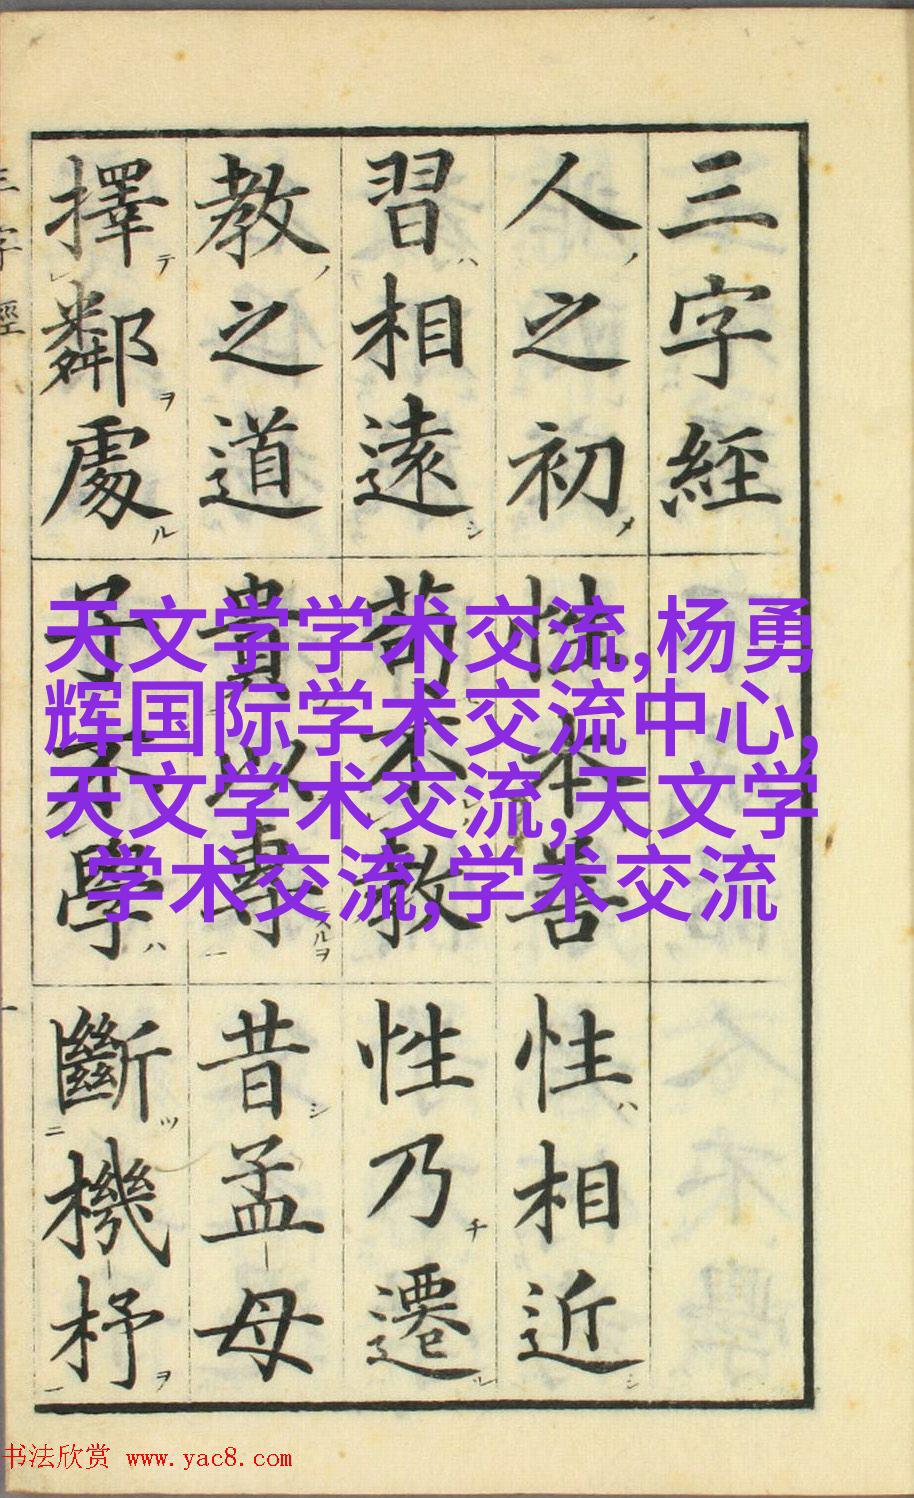 三字經
人之初 性本善 性相近
習相遠 苟不教 性乃遷
教之道 貴以專 昔孟母
擇鄰處 子不學 斷機杼
三字經 一
天文学学术交流,杨勇
辉国际学术交流中心,
天文学术交流,天文学
学术交流,学术交流
书法欣赏 www.yac8.com